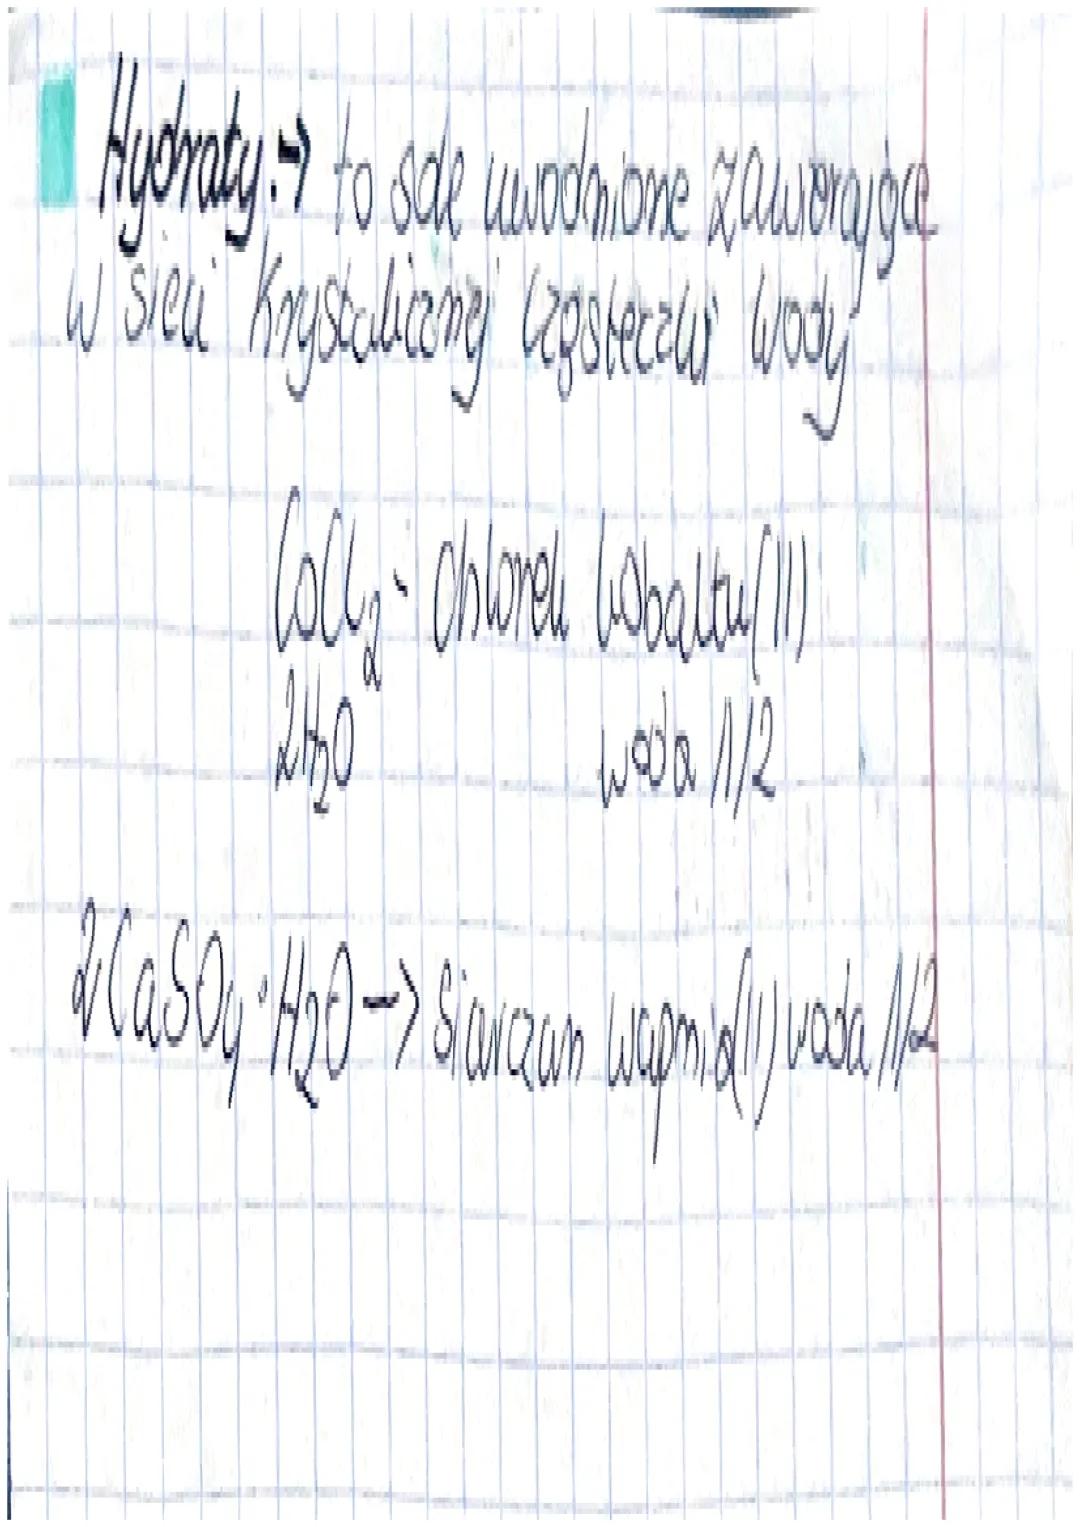 Hydraty:→ to sole uwodnione zawierające
w sieci krystalicznej cząsteczki wody
CoCl₂· chlorek kobaltu(II)
2H₂O woda 1/2
2CaSO₄·H₂O → siarczan wapnia(II) woda 1/2